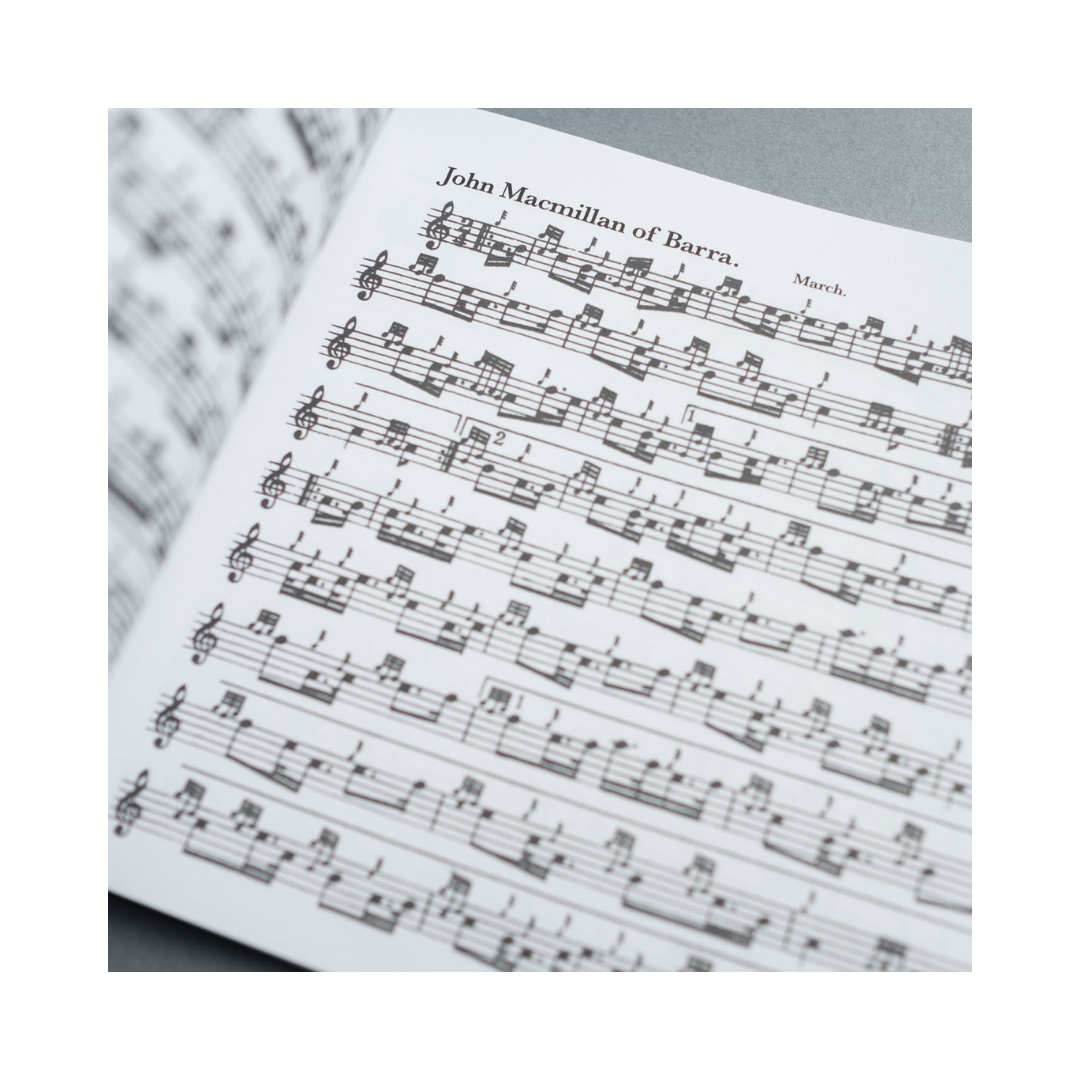 John Macmillan of Barra.
March.
2
4
1
2
1